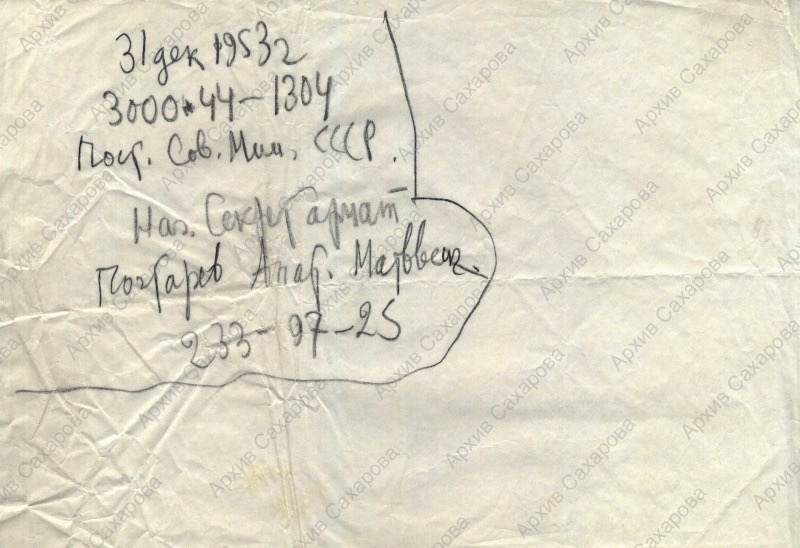 31 дек 1953 г
3000.44-1304
Пост. Сов. Мин. СССР.
Наг. Секретариат
Андр. Матвеев.
233-97-25
Архив Сахарова